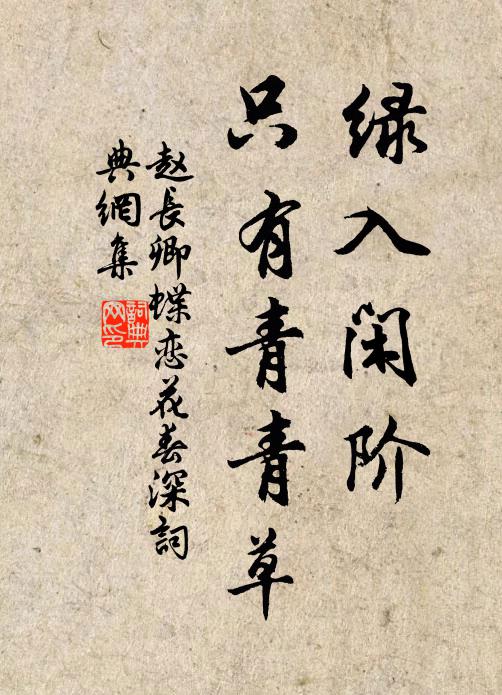 绿入闲阶
只有青青草
赵長卿蝶恋花春深詞
典網集
詞典
网印